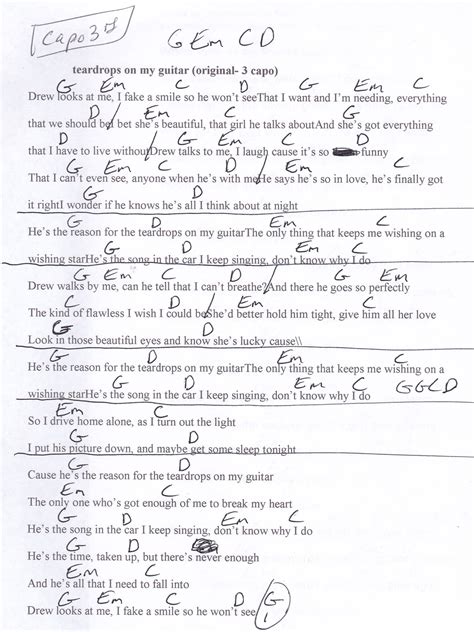 Capo 3rd
G Em C D
teardrops on my guitar (original- 3 capo)
G Em C D G Em C
Drew looks at me, I fake a smile so he won't seeThat I want and I'm needing, everything
D G Em C
that we should beI bet she's beautiful, that girl he talks aboutAnd she's got everything
D G Em C D
that I have to live withoutDrew talks to me, I laugh cause it's so funny
G Em C D G Em C
That I can't even see, anyone when he's with meHe says he's so in love, he's finally got
D
it rightI wonder if he knows he's all I think about at night
G D Em C
He's the reason for the teardrops on my guitarThe only thing that keeps me wishing on a
G D Em C
wishing starHe's the song in the car I keep singing, don't know why I do
G Em C D G Em C
Drew walks by me, can he tell that I can't breathe?And there he goes so perfectly
D Em C
The kind of flawless I wish I could beShe'd better hold him tight, give him all her love
G D
Look in those beautiful eyes and know she's lucky cause\\
G D Em C
He's the reason for the teardrops on my guitarThe only thing that keeps me wishing on a
G D Em C GGCD
wishing starHe's the song in the car I keep singing, don't know why I do
Em C
So I drive home alone, as I turn out the light
G D
I put his picture down, and maybe get some sleep tonight
G D
Cause he's the reason for the teardrops on my guitar
Em C
The only one who's got enough of me to break my heart
G D Em C
He's the song in the car I keep singing, don't know why I do
G D
He's the time, taken up, but there's never enough
Em C
And he's all that I need to fall into
G Em C D G
Drew looks at me, I fake a smile so he won't see